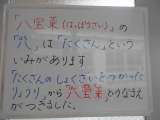 「八宝菜(はっぽうさい)」の
「八」は「たくさん」という
いみがあります
「たくさんのしょくざいをつかった
りょうり」から「八宝菜」というなまえ
がつきました。